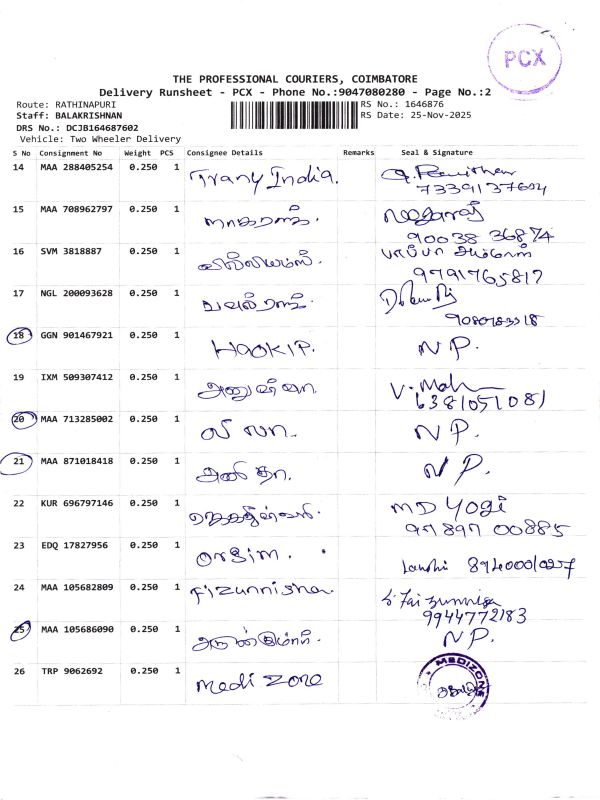 PCX
THE PROFESSIONAL COURIERS, COIMBATORE
Delivery Runsheet - PCX - Phone No.:9047080280 - Page No.:2
Route: RATHINAPURI RS No.: 1646876
Staff: BALAKRISHNAN RS Date: 25-Nov-2025
DRS No.: DCJB164687602
Vehicle: Two Wheeler Delivery
S No Consignment No Weight PCS Consignee Details Remarks Seal & Signature
14 MAA 288405254 0.250 1 Trany India.
15 MAA 708962797 0.250 1 நாகராஜ். நாகராஜ்
90038 36874
16 SVM 3818887 0.250 1 வில்லியம்ஸ்.
9791765817
17 NGL 200093628 0.250 1
18 GGN 901467921 0.250 1 HAOKIP. NP.
19 IXM 509307412 0.250 1 V. Moh
6381051081
20 MAA 713285002 0.250 1 லீலா. NP.
21 MAA 871018418 0.250 1 அனிதா. NP.
22 KUR 696797146 0.250 1 MD Yogi
97897 00885
23 EDQ 17827956 0.250 1
24 MAA 105682809 0.250 1 Fizunnisha. S. Faizunnisa
9944772183
25 MAA 105686090 0.250 1 NP.
26 TRP 9062692 0.250 1 Medi Zone MEDIZONE